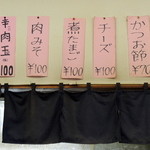 かつお節
¥70
チーズ
¥100
煮たまご
¥100
肉みそ
¥100
肉玉
100